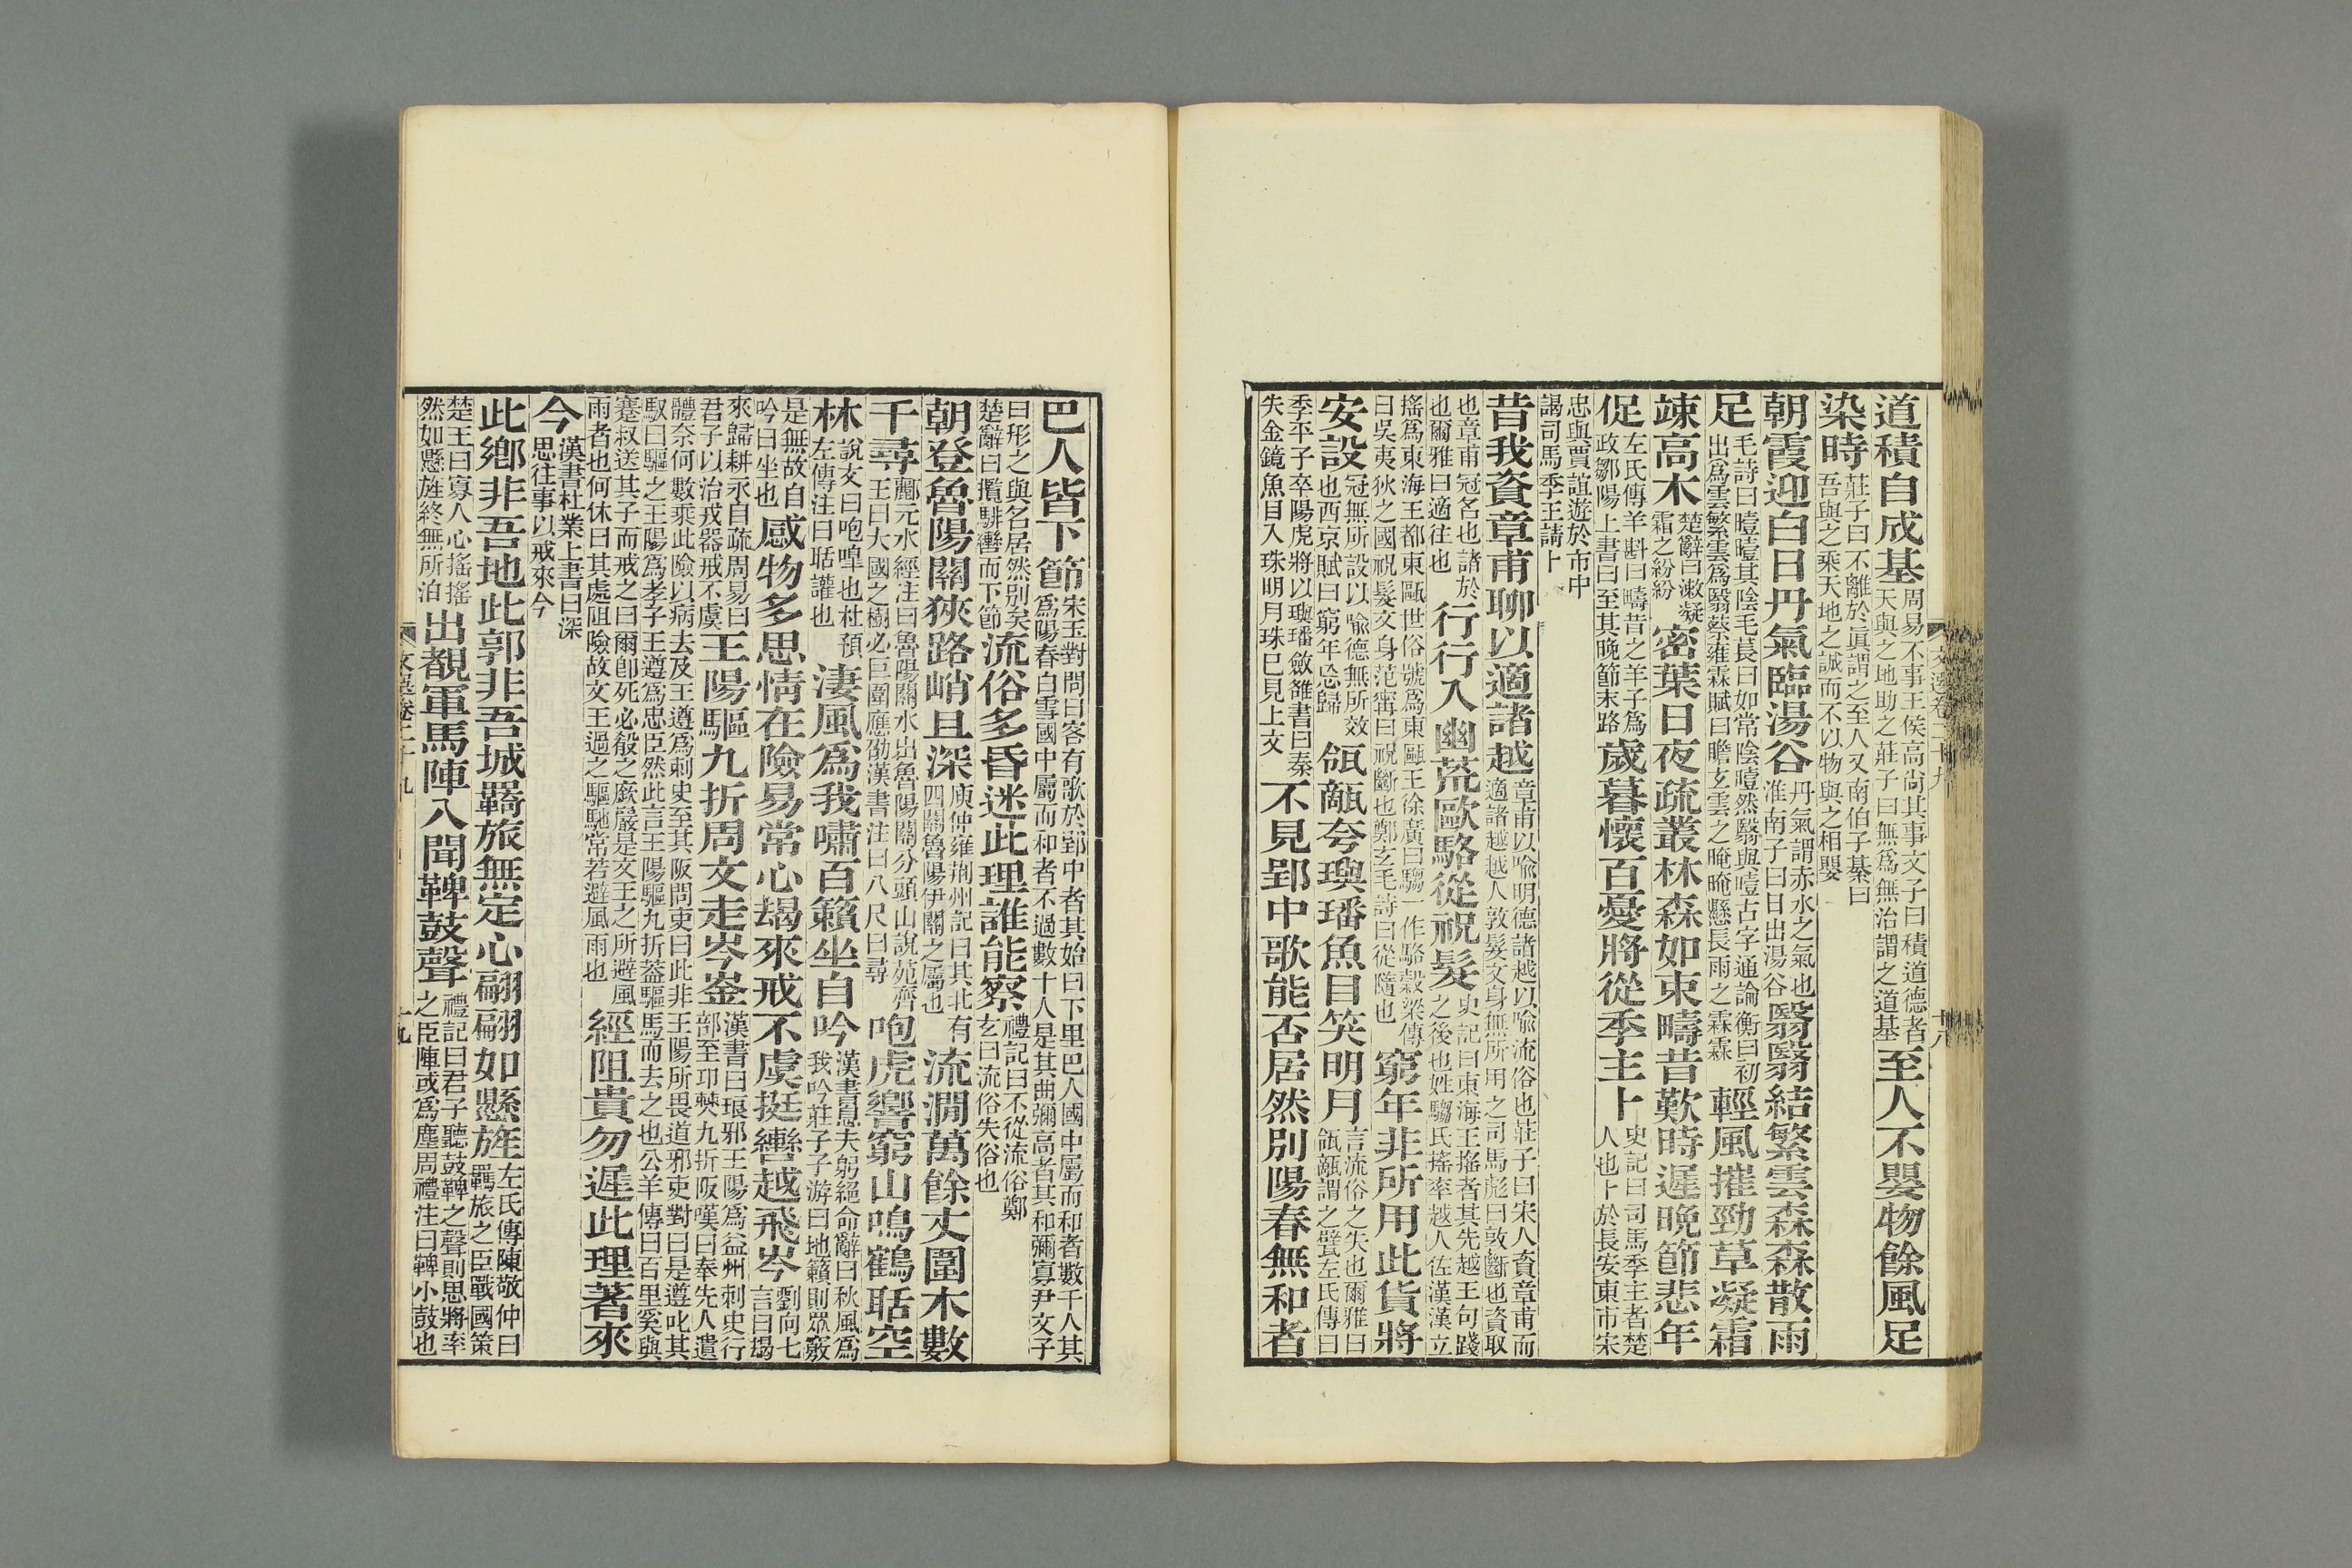 道積自成基周易不事王侯高尚其事文子曰積道德者天與之地助之莊子曰無爲無治謂之道基至人不嬰物餘風足
染時莊子曰不離於眞謂之至人又南伯子綦曰吾與之乘天地之誠而不以物與之相嬰
朝霞迎白日丹氣臨湯谷丹氣謂赤水之氣也淮南子曰日出湯谷翳翳結繁雲森森散雨
足毛詩曰曀曀其陰毛萇曰如常陰曀然翳與曀古字通論衡曰初出爲雲繁雲爲翳蔡雍霖賦曰瞻玄雲之晻晻懸長雨之霖霖輕風摧勁草凝霜
竦高木楚辭曰漱凝霜之紛紛密葉日夜疏叢林森如束疇昔歎時遲晚節悲年
促左氏傳羊斟曰疇昔之羊子爲政鄒陽上書曰至其晚節末路歲暮懷百憂將從季主卜史記曰司馬季主者楚人也卜於長安東市宋
忠與賈誼遊於市中謁司馬季主請卜
昔我資章甫聊以適諸越章甫以喩明德諸越以喩流俗也莊子曰宋人資章甫而適諸越越人敦髮文身無所用之司馬彪曰敦斷也資取
也章甫冠名也諸於也爾雅曰適往也行行入幽荒歐駱從祝髮史記曰東海王搖者其先越王句踐之後也姓騶氏搖率越人佐漢漢立
搖爲東海王都東甌世俗號爲東甌王徐廣曰騶一作駱穀梁傳曰吳夷狄之國祝髮文身范甯曰祝斷也鄭玄毛詩曰從隨也窮年非所用此貨將
安設冠無所設以喩德無所效也西京賦曰窮年忘歸瓴甋夸璵璠魚目笑明月言流俗之失也爾雅曰瓴甋謂之甓左氏傳曰
季平子卒陽虎將以璵璠斂雒書曰秦失金鏡魚目入珠明月珠已見上文不見郢中歌能否居然別陽春無和者
文選卷二十九
十八
巴人皆下節宋玉對問曰客有歌於郢中者其始曰下里巴人國中屬而和者數千人其爲陽春白雪國中屬而和者不過數十人是其曲彌高者其和彌寡尹文子
曰形之與名居然別矣楚辭曰攬騑轡而下節流俗多昏迷此理誰能察禮記曰不從流俗鄭玄曰流俗失俗也
朝登魯陽關狹路峭且深庾仲雍荊州記曰其北有四關魯陽伊闕之屬也流澗萬餘丈圍木數
千尋酈元水經注曰魯陽關水出魯陽關分頭山說苑齊王曰大國之樹必巨圍應劭漢書注曰八尺曰尋咆虎響窮山鳴鶴聒空
林說文曰咆嘷也杜預左傳注曰聒讙也淒風爲我嘯百籟坐自吟漢書息夫躬絕命辭曰秋風爲我吟莊子子游曰地籟則眾竅
是無故自吟曰坐也感物多思情在險易常心朅來戒不虞挺轡越飛岑劉向七言曰朅
來歸耕永自疏周易曰君子以治戎器戒不虞王陽驅九折周文走岑崟漢書曰琅邪王陽爲益州刺史行部至邛僰九折阪嘆曰奉先人遺
體奈何數乘此險以病去及王遵爲刺史至其阪問吏曰此非王陽所畏道邪吏對曰是遵叱其馭曰驅之王陽爲孝子王遵爲忠臣然此言王陽驅九折葢驅馬而去之也公羊傳曰百里奚與
蹇叔送其子而戒之曰爾卽死必殽之嶔巖是文王之所避風雨者也何休曰其處阻險故文王過之驅馳常若避風雨也經阻貴勿遲此理著來
今漢書杜業上書曰深思往事以戒來今
此鄕非吾地此郭非吾城羇旅無定心翩翩如懸旌左氏傳陳敬仲曰羈旅之臣戰國策
楚王曰寡人心搖搖然如懸旌終無所泊出覩軍馬陣入聞鞞鼓聲禮記曰君子聽鼓鞞之聲則思將率之臣陣或爲塵周禮注曰鞞小鼓也
文選卷二十九
十九